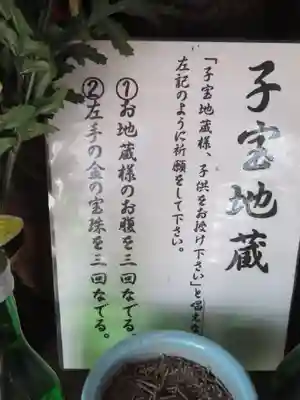 子宝地蔵
「子宝地蔵様、子供をお授け下さい」と唱え
左記のように祈願をして下さい。
①お地蔵様のお腹を三回なでる。
②左手の金の宝珠を三回なでる。